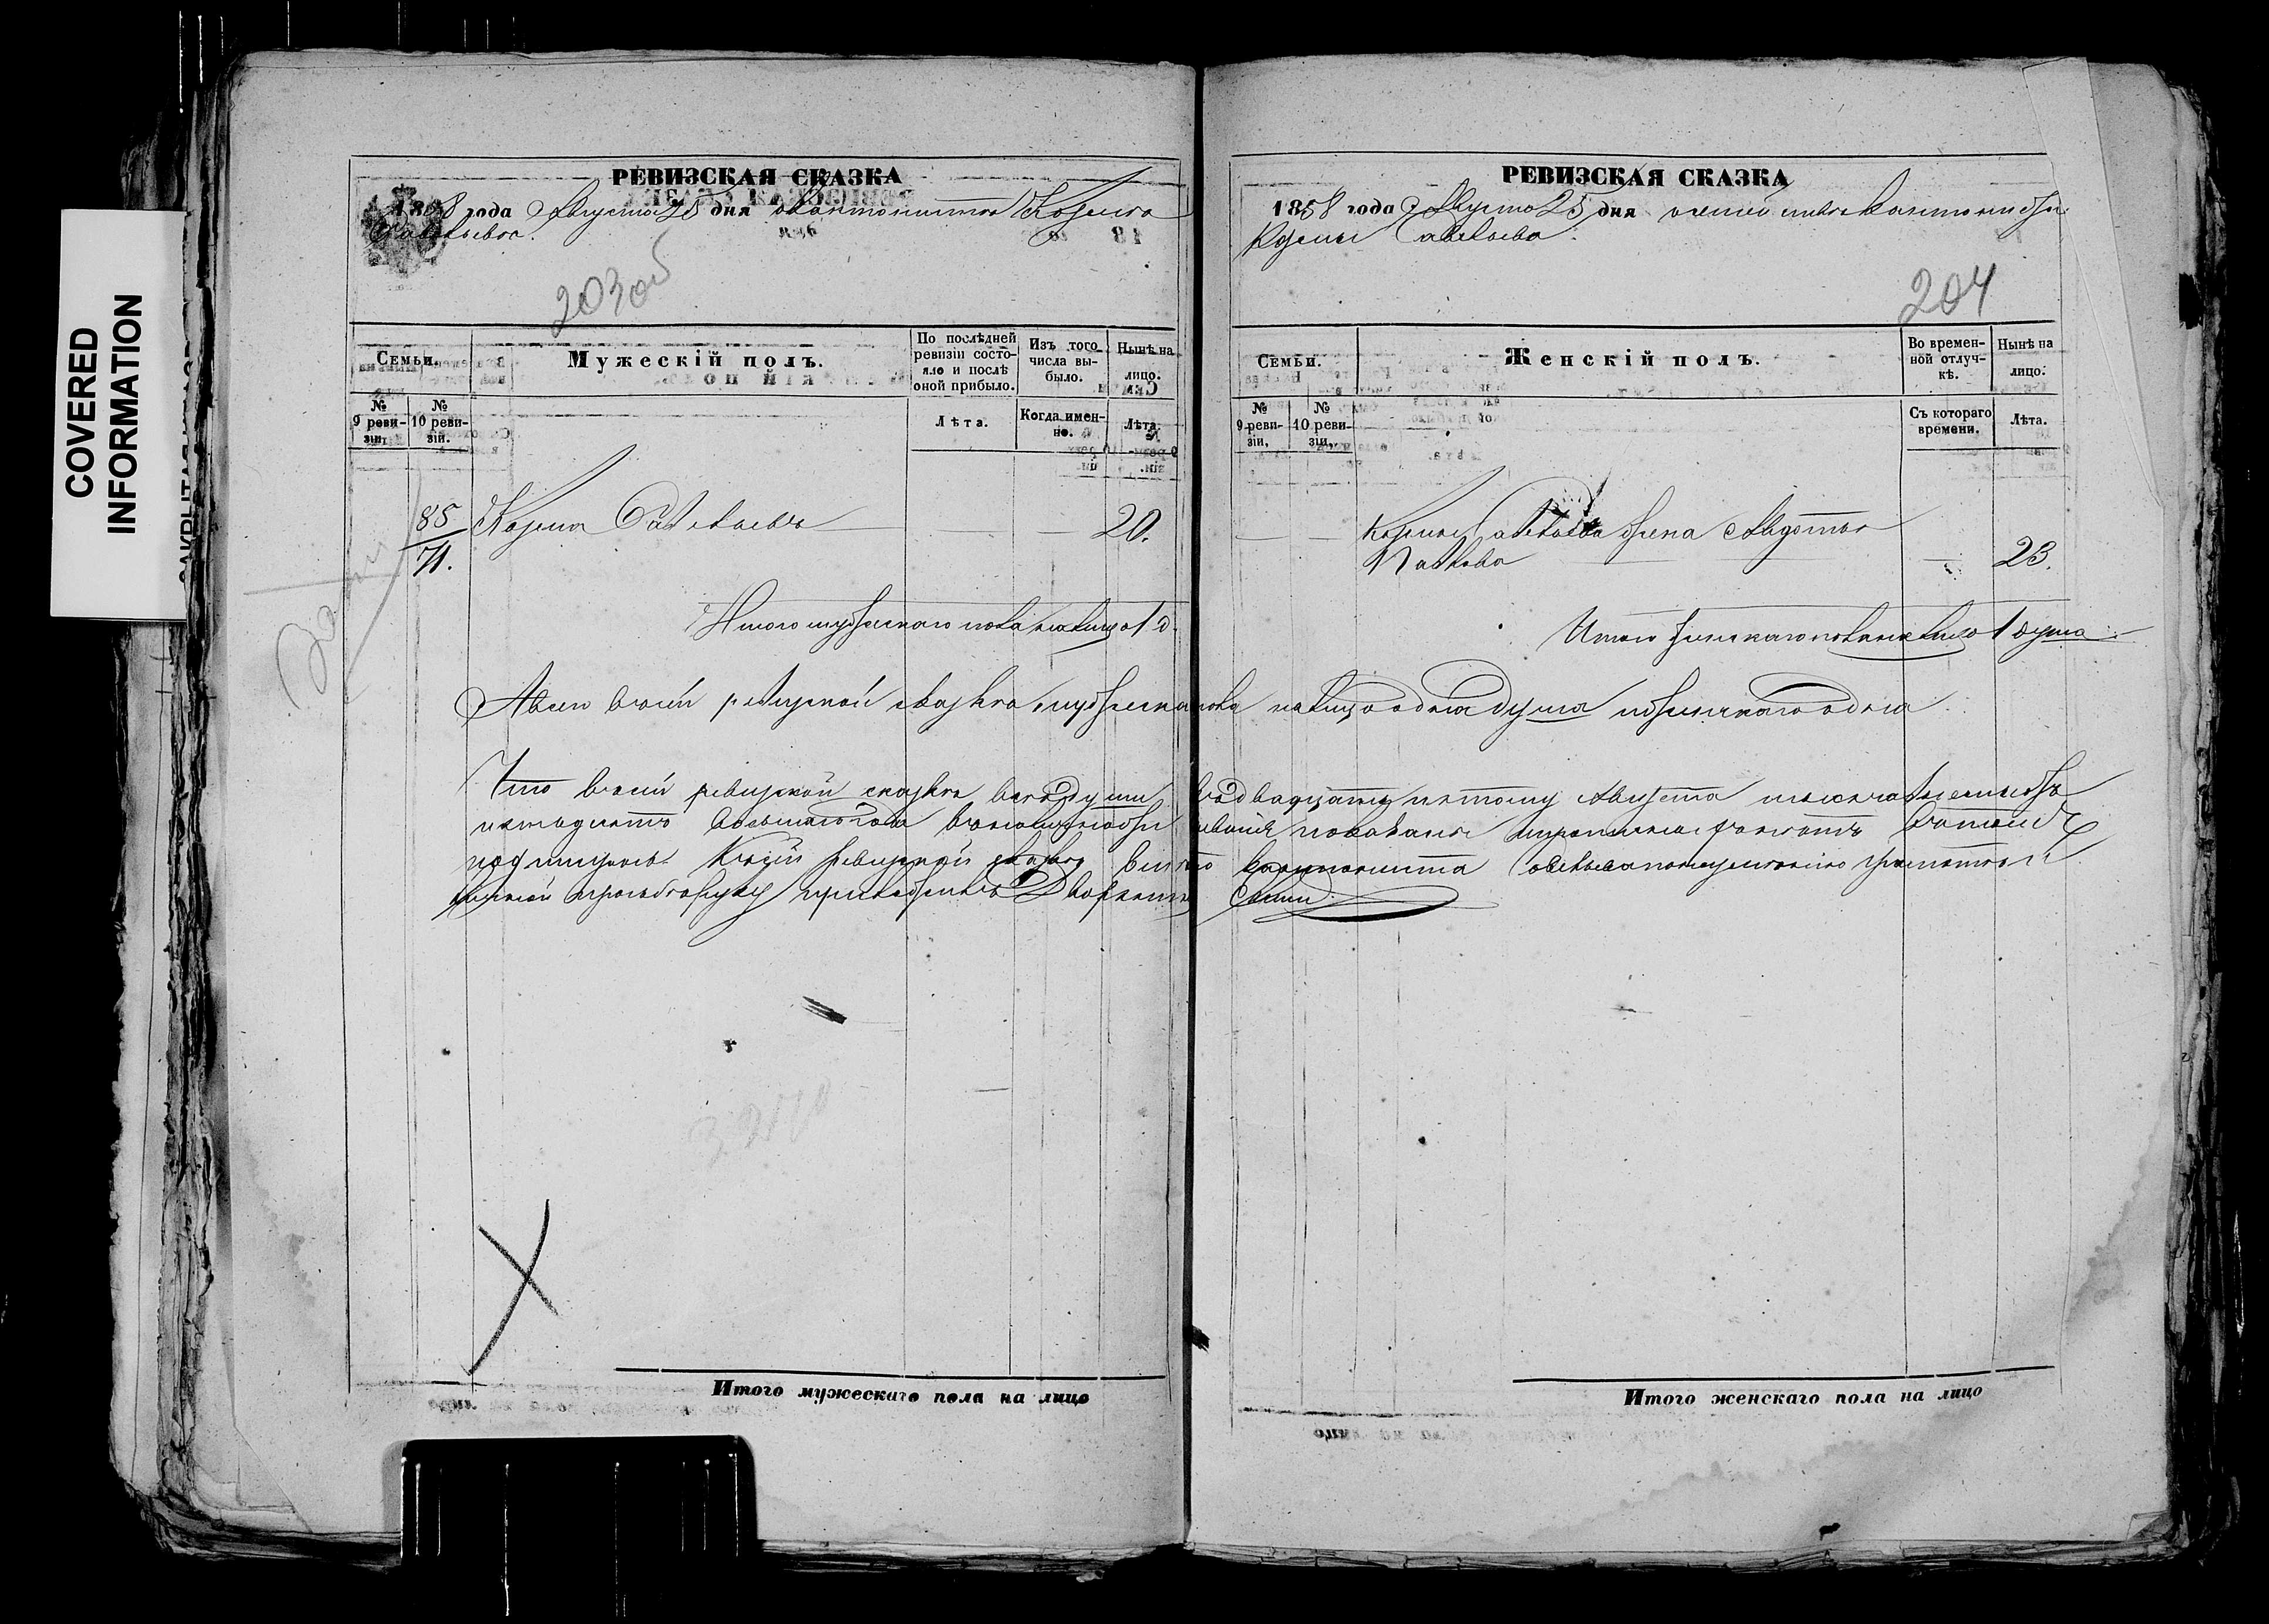 COVERED
INFORMATION
РЕВИЗСКАЯ СКАЗКА
1858 года Августа 25 дня о кантонисте Козьме
Савельеве.
203 об
Семьи.
Мужескій полъ.
По послѣдней ревизіи состояло и послѣ оной прибыло.
Изъ того числа выбыло.
Нынѣ на лицо.
№ 9 ревизіи.
№ 10 ревизіи.
Лѣта.
Когда именно.
Лѣта.
85 Козьма Савельевъ 20.
71.
Итого мужескаго пола на лицо 1 д.
РЕВИЗСКАЯ СКАЗКА
1858 года Августа 25 дня о семействе кантониста
Козмы Савельева.
204
Семьи.
Женскій полъ.
Во временной отлучкѣ.
Нынѣ на лицо.
№ 9 ревизіи,
№ 10 ревизіи,
Съ котораго времени.
Лѣта.
Козмы Савельева жена Авдотья
Павлова 23.
Итого женскаго пола на лицо 1 душа
А всего в сей ревизской сказке мужеска пола на лицо одна душа и женскаго одна
Что в сей ревизской сказке все души к двадцать пятому Августа тысяча восемьсотъ
пятьдесятъ восьмаго года
К сей ревизской сказке вместо кантониста Савельева
Итого мужескаго пола на лицо
Итого женскаго пола на лицо